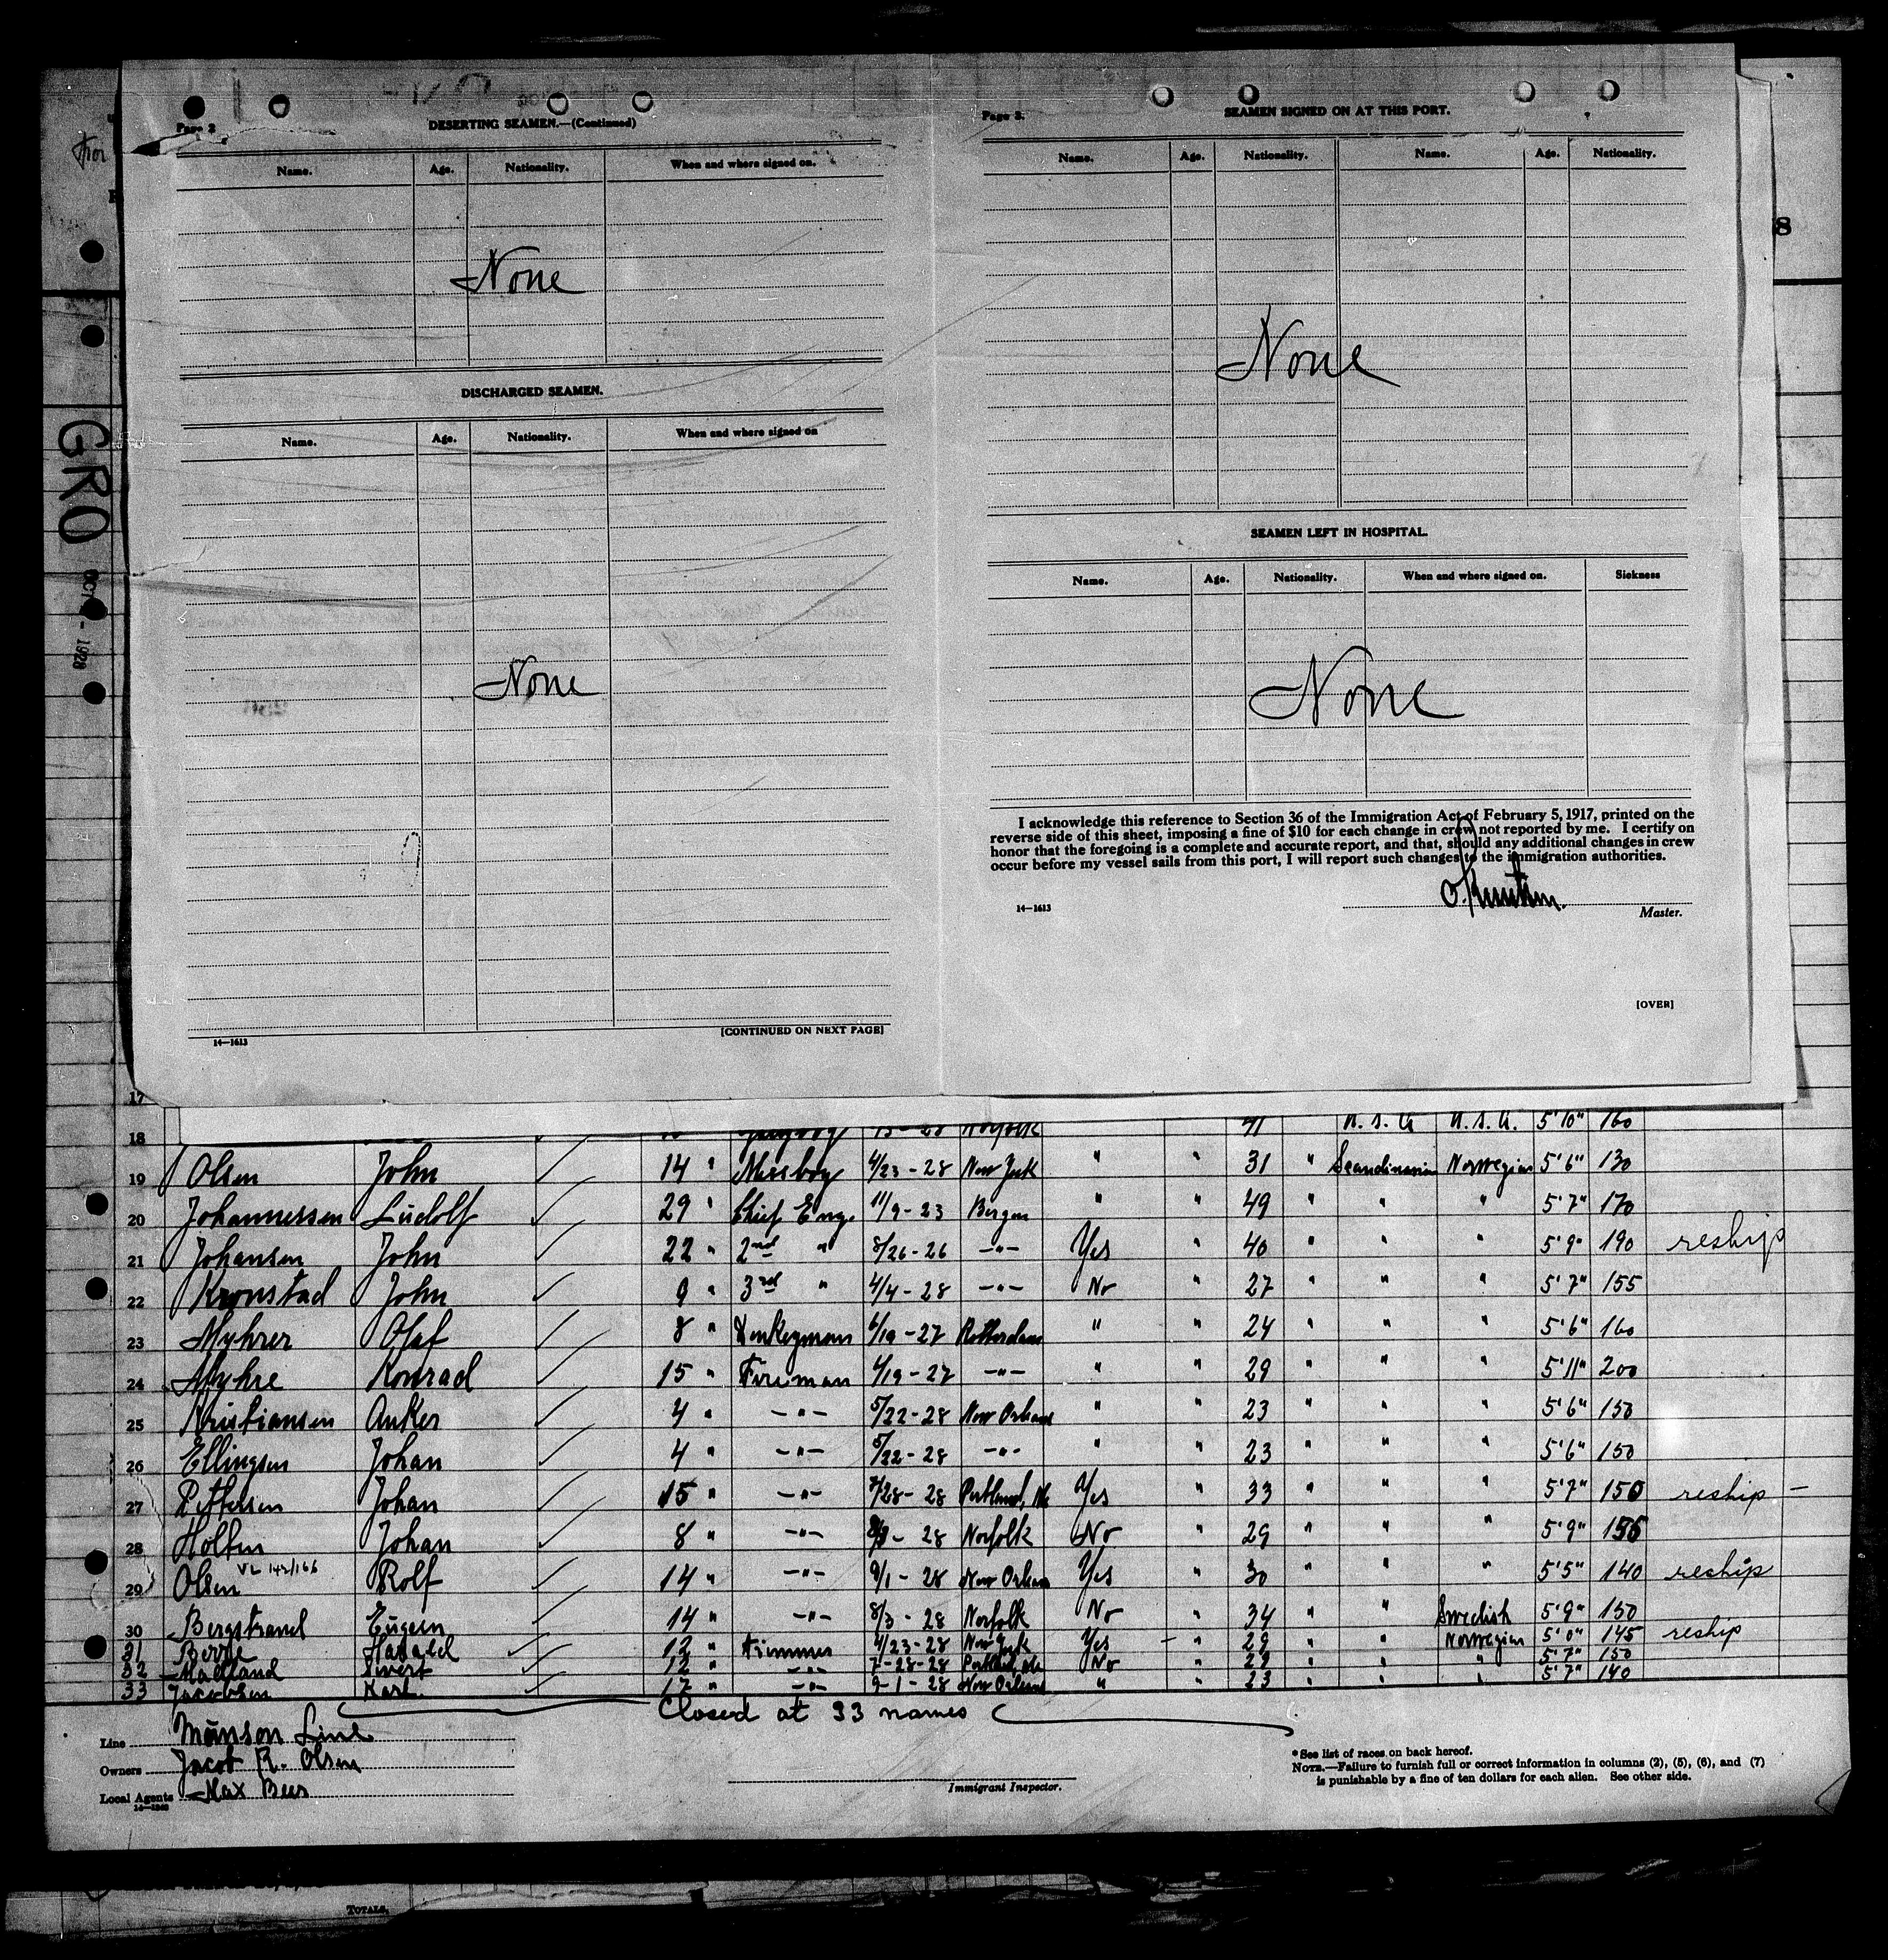 Page 2
DESERTING SEAMEN.—(Continued)
Name. Age. Nationality. When and where signed on.
None
DISCHARGED SEAMEN.
Name. Age. Nationality. When and where signed on
None
14—1613
[CONTINUED ON NEXT PAGE]
Page 3.
SEAMEN SIGNED ON AT THIS PORT.
Name. Age. Nationality. Name. Age. Nationality.
None
SEAMEN LEFT IN HOSPITAL.
Name. Age. Nationality. When and where signed on. Sickness
None
I acknowledge this reference to Section 36 of the Immigration Act of February 5, 1917, printed on the
reverse side of this sheet, imposing a fine of $10 for each change in crew not reported by me. I certify on
honor that the foregoing is a complete and accurate report, and that, should any additional changes in crew
occur before my vessel sails from this port, I will report such changes to the immigration authorities.
14—1613
Master.
[OVER]
8
GRO
1928
17
18 Norfolk 5'10" 160
19 Olsen John 14 " Messboy 4/23-28 New York " " 31 " Scandinavian Norwegian 5'6" 130
20 Johannessen Ludolf 29 " Chief Eng. 11/9-23 Bergen " " 49 " " " 5'7" 170
21 Johansen John 22 " 2nd " 8/26-26 -"- Yes " 40 " " " 5'9" 190 reship
22 Kronstad John 9 " 3rd " 4/4-28 -"- No " 27 " " " 5'7" 155
23 Myhrer Olaf 8 " Donkeyman 6/19-27 Rotterdam " " 24 " " " 5'6" 160
24 Myhre Konrad 15 " Fireman 4/19-27 -"- " " 29 " " " 5'11" 200
25 Kristiansen Anker 4 " -"- 5/22-28 New Orleans " " 23 " " " 5'6" 150
26 Ellingsen Johan 4 " -"- 5/22-28 -"- " " 23 " " " 5'6" 150
27 Pettersen Johan 15 " -"- 7/28-28 Portland, Me Yes " 33 " " " 5'7" 150 reship -
28 Holten Johan 8 " -"- 28 Norfolk No " 29 " " " 5'9" 155
VL 142/166
29 Olsen Rolf 14 " -"- 9/1-28 New Orleans Yes " 30 " " " 5'5" 140 reship
30 Bergstrand Eugen 14 " -"- 8/3-28 Norfolk No " 34 " " Swedish 5'9" 150
31 Berge 12 " Trimmer 4/23-28 New York Yes - " 29 " " Norwegian 5'0" 145 reship
32 Madland Sivert 12 " -"- 7-28-28 Portland, Me No " 29 " " " 5'7" 150
33 Jacobsen Karl 12 " -"- 9-1-28 New Orleans " " 23 " " " 5'7" 140
Closed at 33 names
Line Munson Line
Owners Jacob R. Olsen
Local Agents
Immigrant Inspector.
* See list of races on back hereof.
NOTE.—Failure to furnish full or correct information in columns (2), (5), (6), and (7)
is punishable by a fine of ten dollars for each alien. See other side.
TOTALS,